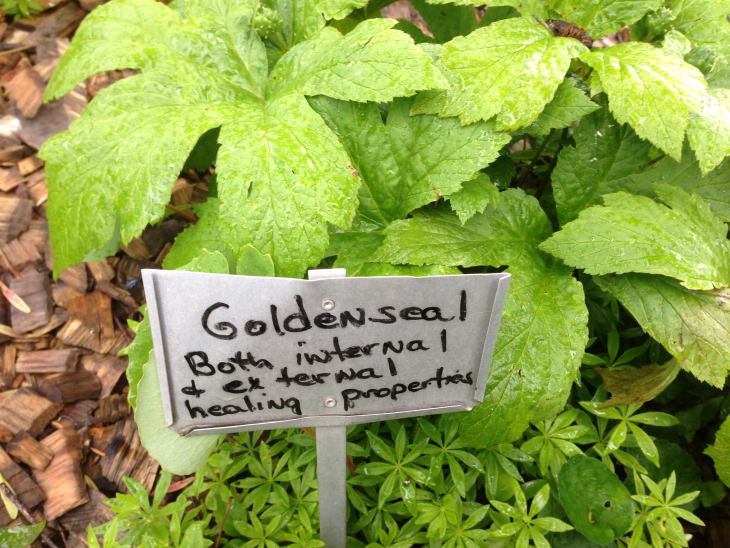 Goldenseal
Both internal
& external
healing properties